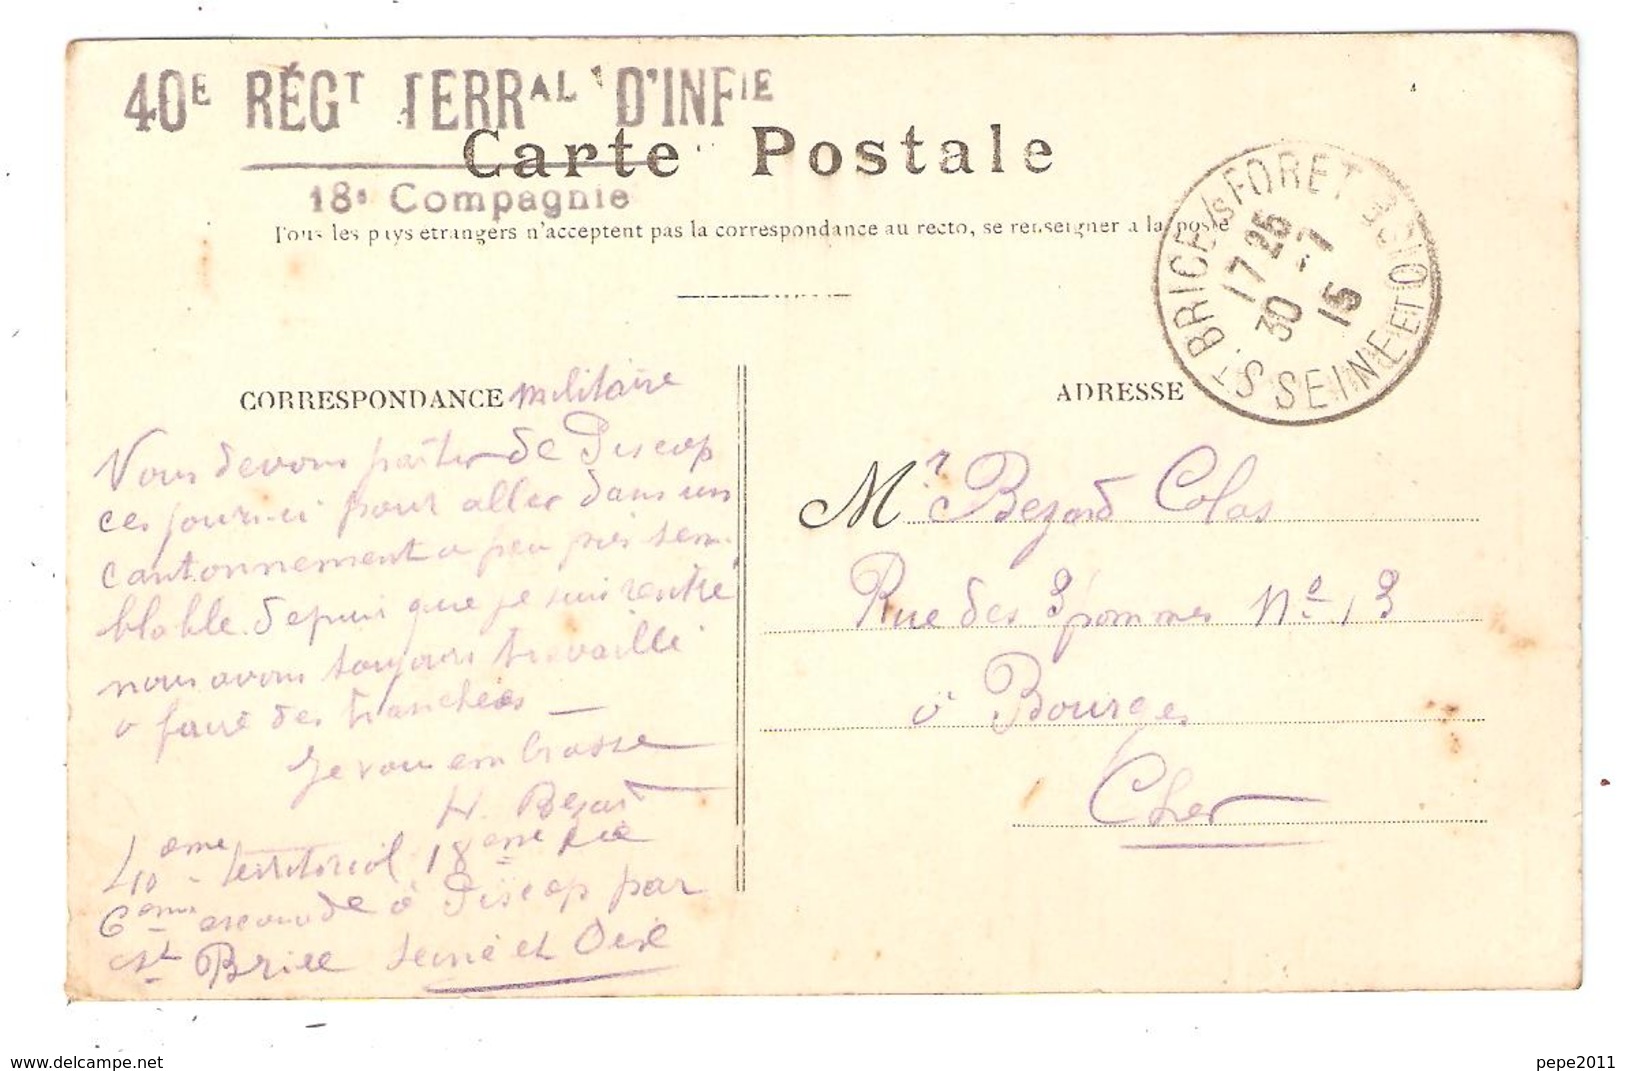 40E RÉGT TERRAL D'INFIE
Carte Postale
18e Compagnie
Tous les pays étrangers n'acceptent pas la correspondance au recto, se renseigner à la poste
ST BRICE S/S FORET
SEINE ET OISE
17 25
30 -7
15
CORRESPONDANCE militaire
Nous devons partir de Piscop
ces jours-ci pour aller dans un
cantonnement a peu près sem-
blable. depuis que je suis rentré
nous avons toujours travaillé
a faire des tranchées
Je vous embrasse
H. Bezard
40eme territorial 18eme Cie
6eme escouade à Piscop par
St Brice Seine et Oise
ADRESSE
Mr Bezard Colas
Rue des 3 pommes No 13
à Bourges
Cher
www.delcampe.net
pepe2011